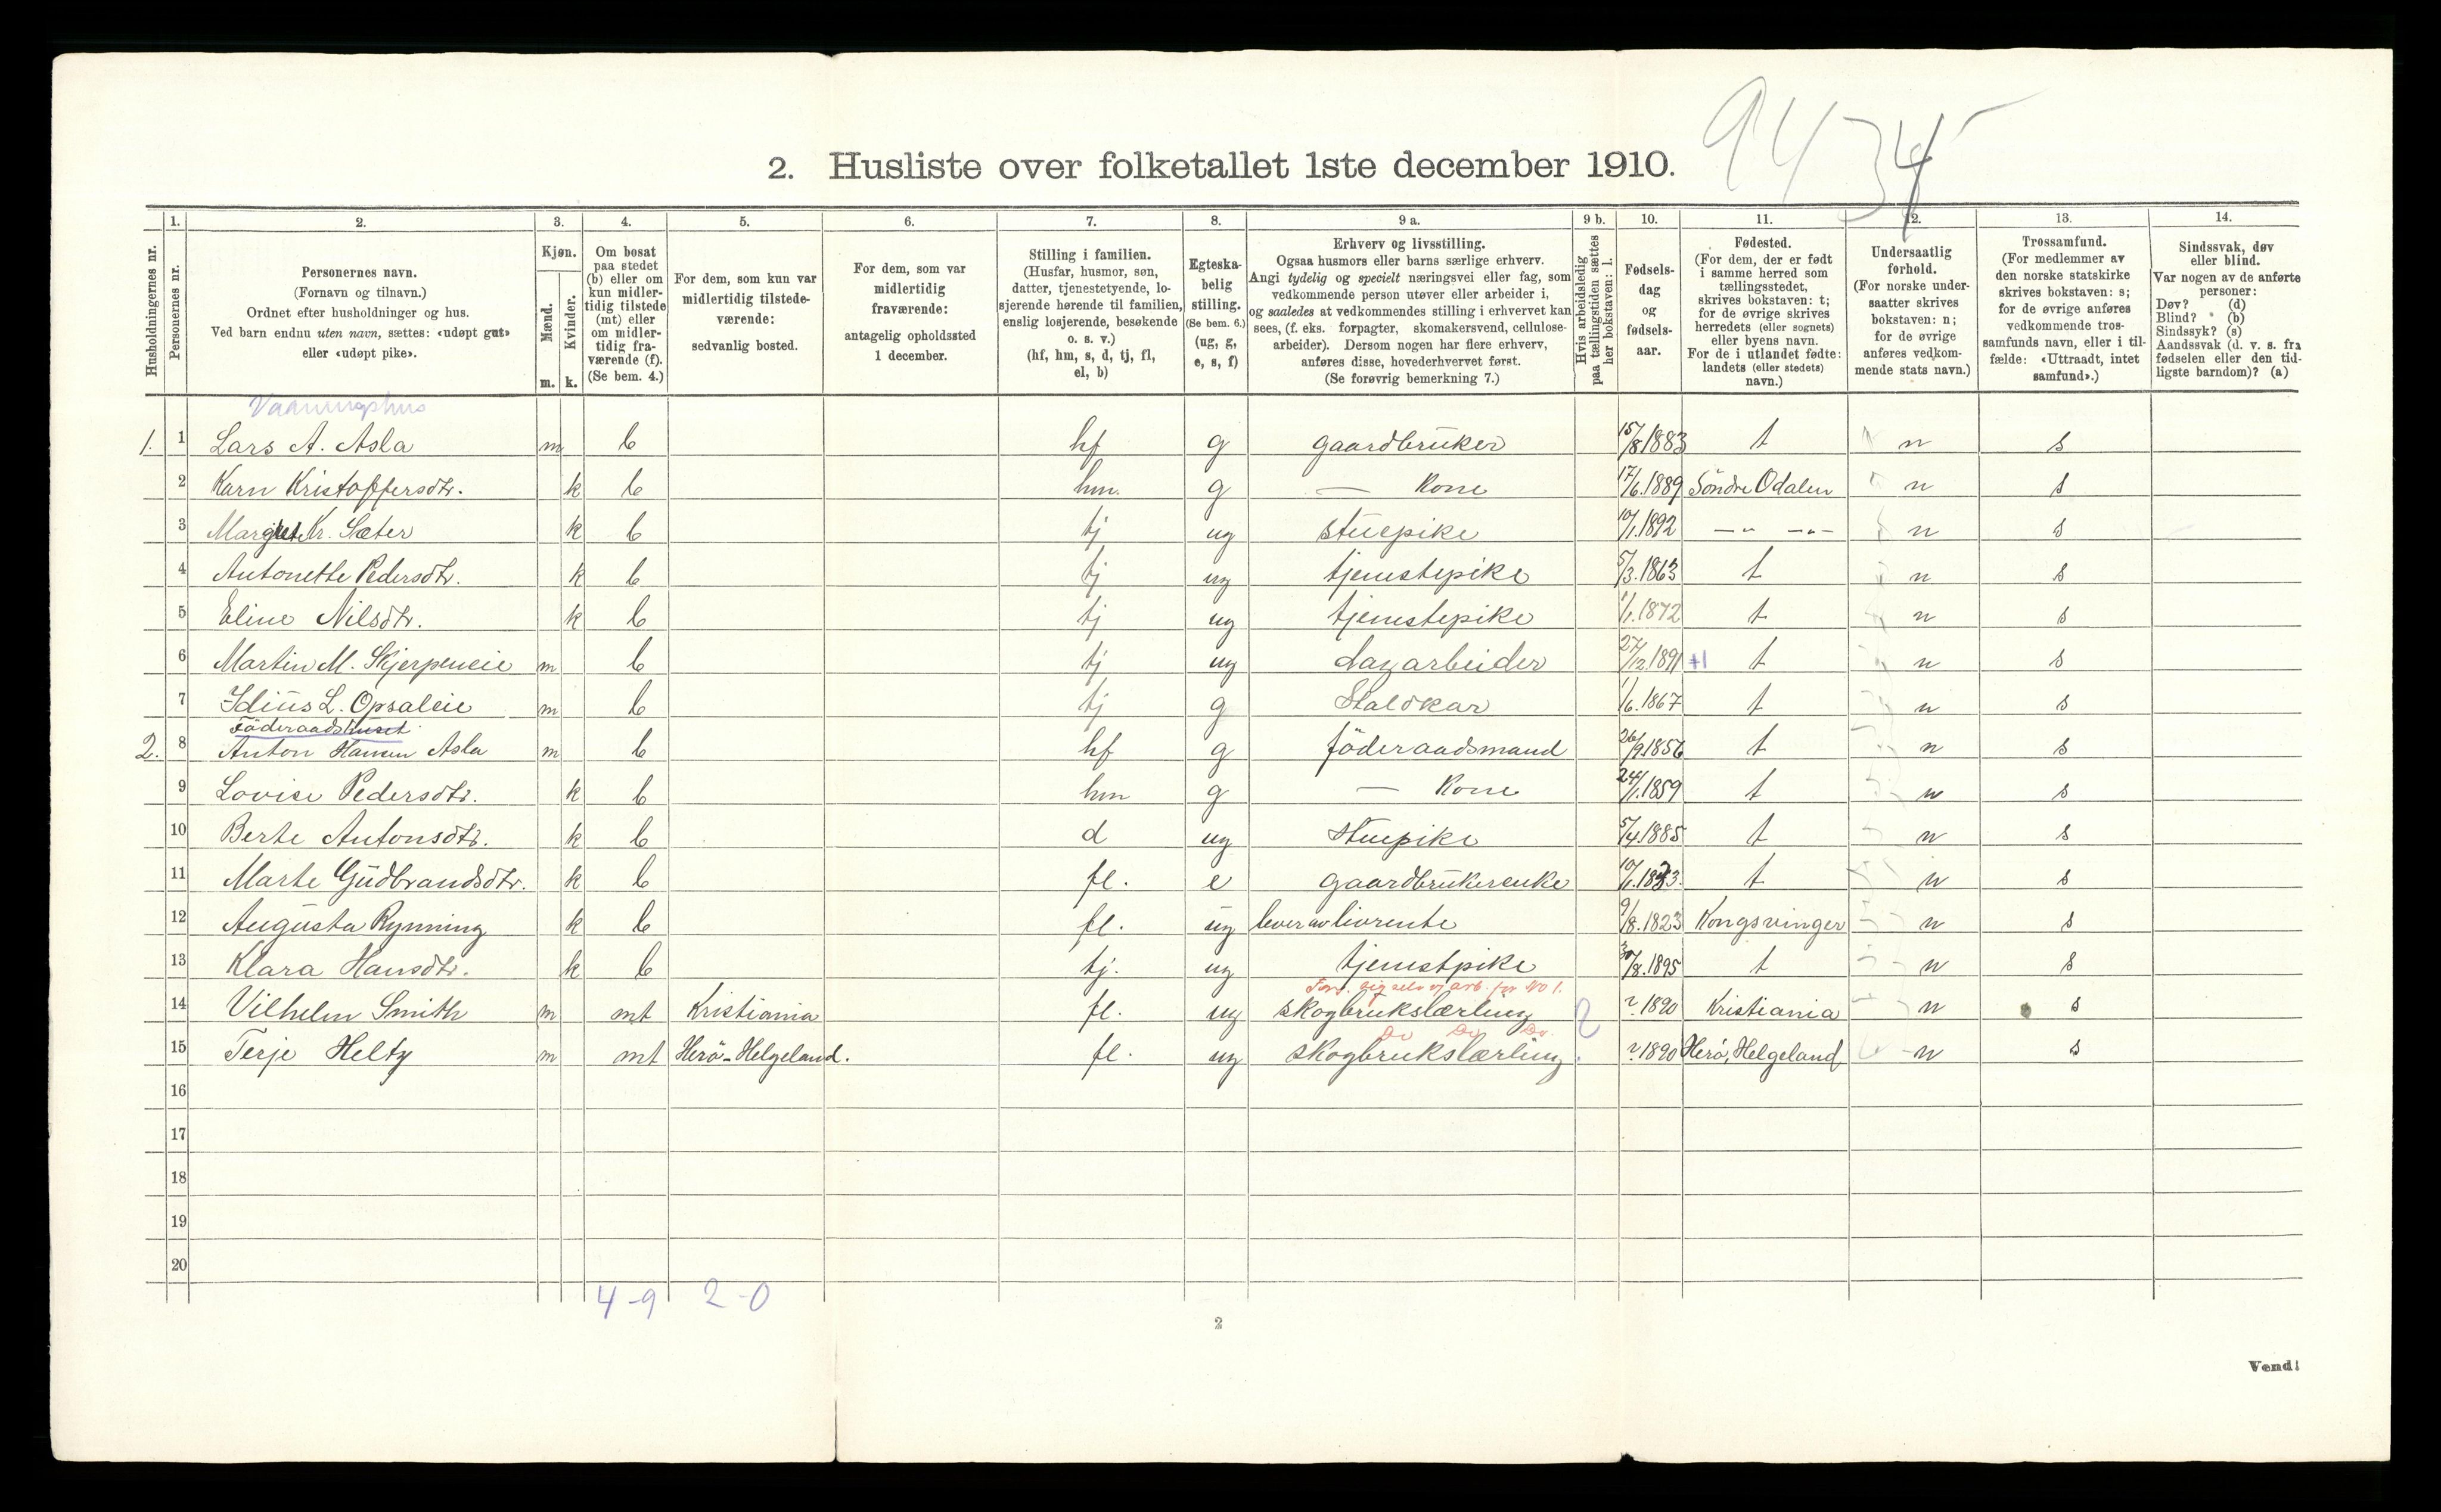 9434
2. Husliste over folketallet 1ste december 1910.
Husholdningernes nr.
1. Personernes nr.
2. Personernes navn. (Fornavn og tilnavn.) Ordnet efter husholdninger og hus. Ved barn endnu uten navn, sættes: «udøpt gut» eller «udøpt pike».
3. Kjøn. Mænd. m. Kvinder. k.
4. Om bosat paa stedet (b) eller om kun midlertidig tilstede (mt) eller om midlertidig fraværende (f). (Se bem. 4.)
5. For dem, som kun var midlertidig tilstedeværende: sedvanlig bosted.
6. For dem, som var midlertidig fraværende: antagelig opholdssted 1 december.
7. Stilling i familien. (Husfar, husmor, søn, datter, tjenestetyende, losjerende hørende til familien, enslig losjerende, besøkende o. s. v.) (hf, hm, s, d, tj, fl, el, b)
8. Egteskabelig stilling. (Se bem. 6.) (ug, g, e, s, f)
9 a. Erhverv og livsstilling. Ogsaa husmors eller barns særlige erhverv. Angi tydelig og specielt næringsvei eller fag, som vedkommende person utøver eller arbeider i, og saaledes at vedkommendes stilling i erhvervet kan sees, (f. eks. forpagter, skomakersvend, cellulosearbeider). Dersom nogen har flere erhverv, anføres disse, hovederhvervet først. (Se forøvrig bemerkning 7.)
9 b. Hvis arbeidsledig paa tællingstiden sættes her bokstaven: l.
10. Fødselsdag og fødselsaar.
11. Fødested. (For dem, der er født i samme herred som tællingsstedet, skrives bokstaven: t; for de øvrige skrives herredets (eller sognets) eller byens navn. For de i utlandet fødte: landets (eller stedets) navn.)
12. Undersaatlig forhold. (For norske undersaatter skrives bokstaven: n; for de øvrige anføres vedkommende stats navn.)
13. Trossamfund. (For medlemmer av den norske statskirke skrives bokstaven: s; for de øvrige anføres vedkommende trossamfunds navn, eller i tilfælde: «Uttraadt, intet samfund».)
14. Sindssvak, døv eller blind. Var nogen av de anførte personer: Døv? (d) Blind? (b) Sindssyk? (s) Aandssvak (d. v. s. fra fødselen eller den tidligste barndom)? (a)
Vaaningshus
1. 1 Lars A. Asla m b hf g gaardbruker 15/8 1883 t n s
2 Karn Kristoffersdtr. k b hm. g — Kone 17/6.1889 Söndre Odalen n s
3 Margret Kr. Sæter k b tj ug stuepike 10/1.1892 —"— —"— n s
4 Antonette Pedersdtr. k b tj ug tjenestepike 5/3.1863 t n s
5 Eline Nilsdtr. k b tj ug tjenestepike 1/1.1872 t n s
6 Martin M. Skjerpeneie m b tj ug dagarbeider 27/12.1891 +1 t n s
7 Idius L. Opsaleie m b tj g Staldkar 1/6.1867 t n s
Föderaadshuset
2. 8 Anton Hansen Asla m b hf g föderaadsmand 26/9.1856 t n s
9 Lovise Pedersdtr. k b hm g — Kone 24/1.1859 t n s
10 Berte Antonsdtr. k b d ug stuepike 5/4.1885 t n s
11 Marte Gudbrandsdtr. k b fl. e gaardbrukerenke 10/1.1833. t n s
12 Augusta Rynning k b fl. ug lever av livrente 9/8.1823 Kongsvinger n s
13 Klara Hansdtr. k b tj. ug tjenestpike 30/8.1895 t n s
Fors. sig selv v/ arb. for No 1.
14 Vilhelm Smith m mt Kristiania fl. ug skogbrukslærling 2 ? 1890 Kristiania n s
Do Do Do.
15 Terje Helty m mt Herö-Helgeland. fl. ug skogbrukslærling. ? 1890 Herö, Helgeland n s
16
17
18
19
20
4-9 2-0
2
Vend!